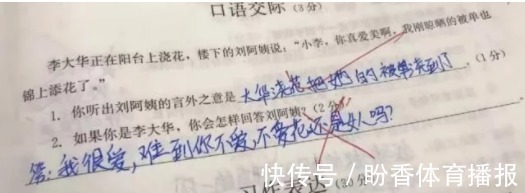 口语交际（3分）
李大华正在阳台上浇花，楼下的刘阿姨说：“小李，你真爱美啊，我刚晾晒的被单也
锦上添花了。”
1. 你听出刘阿姨的言外之意是 大华浇花把她的被单浇到了。（1分）
2. 如果你是李大华，你会怎样回答刘阿姨？（2分）
答：我很爱，难到你不爱，不爱花还是女人吗？
快传号／盼香体育播报